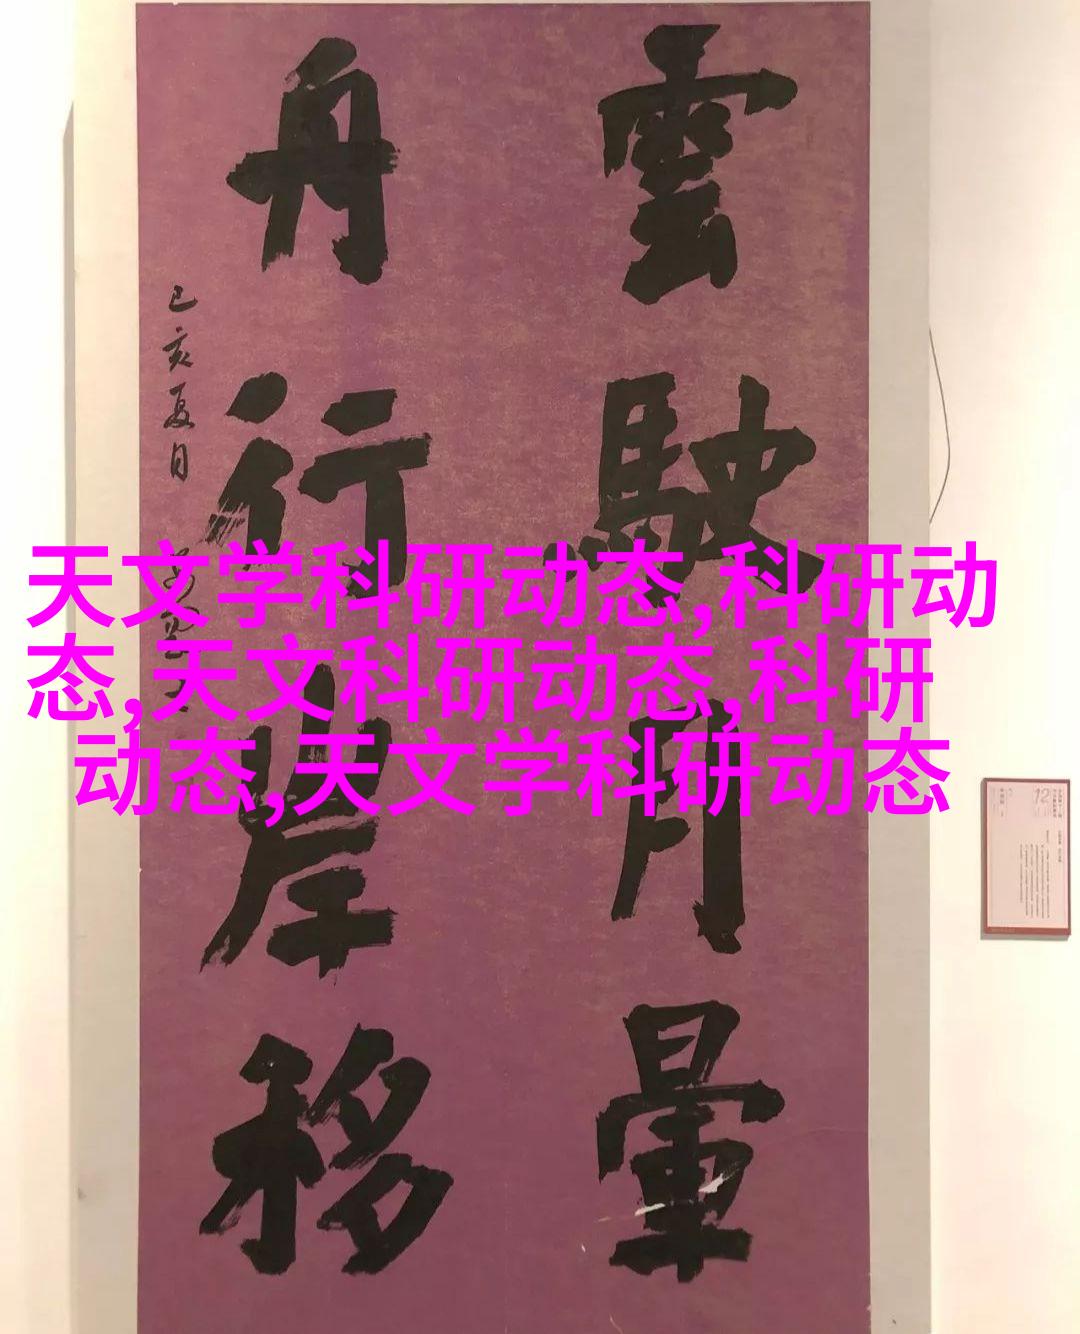 雲駛月暈
舟行岸移
己亥夏日
天文学科研动态,科研动
态,天文科研动态,科研
动态,天文学科研动态
12